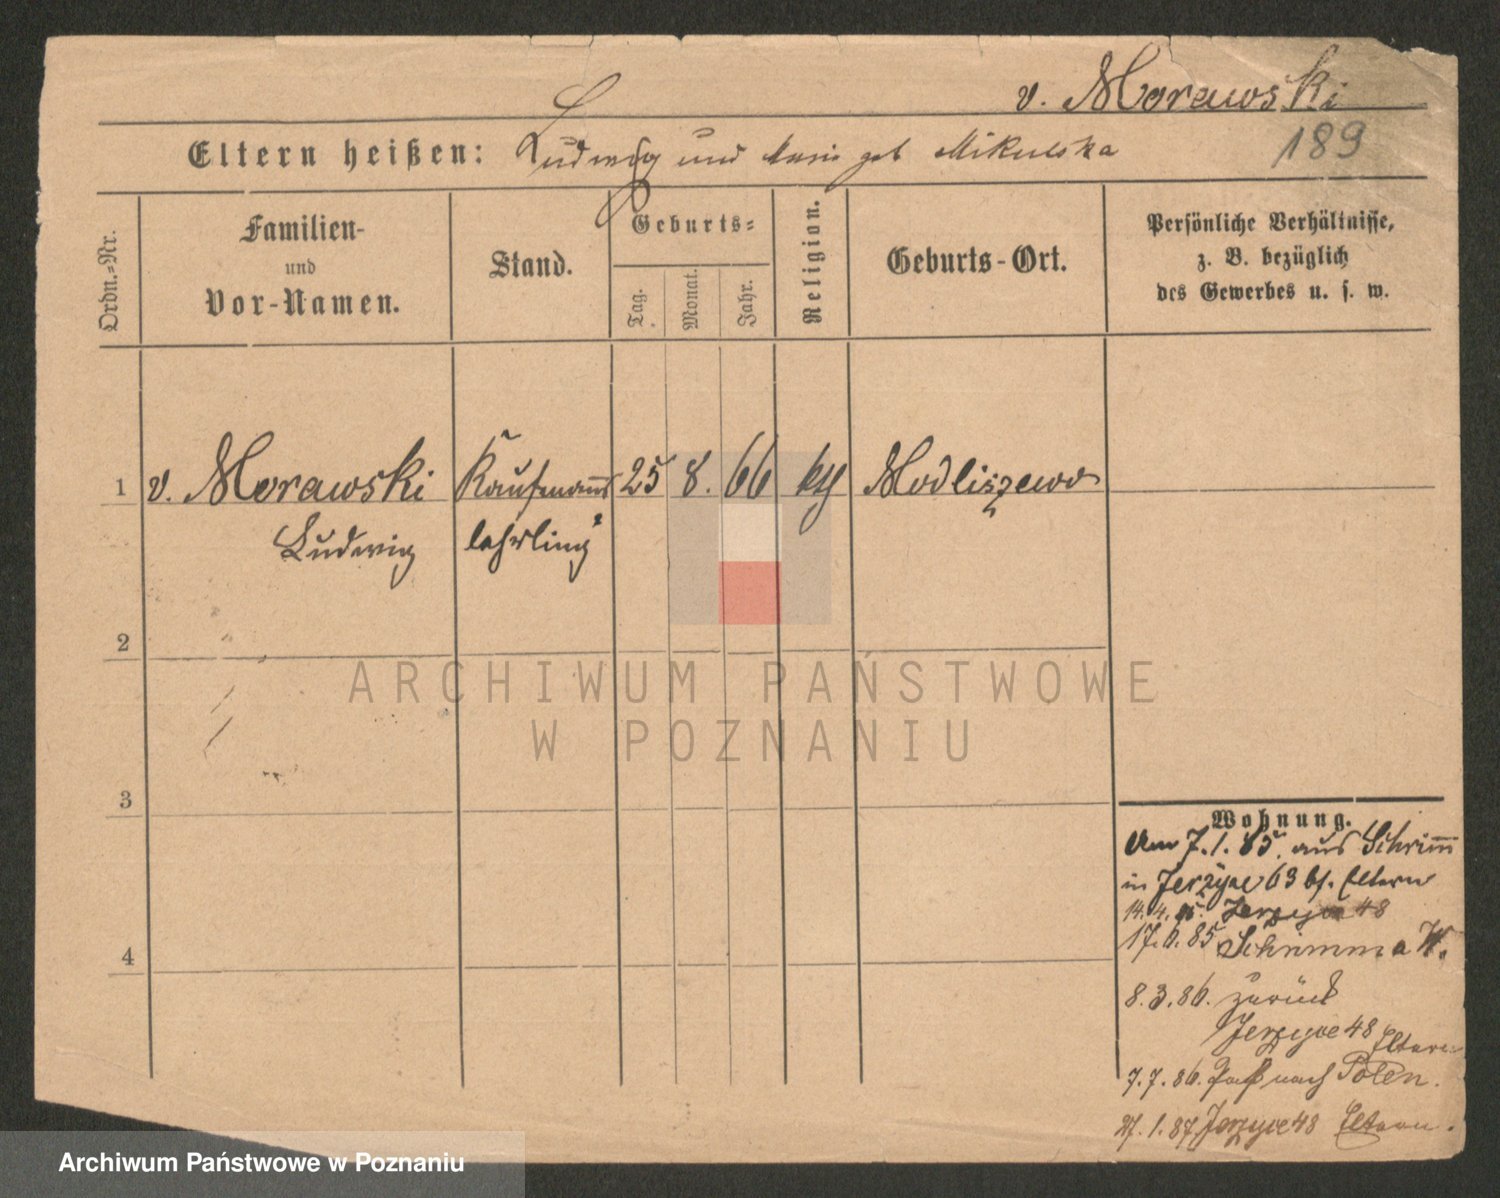 v. Morawski
189
Eltern heißen: Ludwig und Marie geb Mikulska
Ordn.=Nr.
Familien-
und
Vor-Namen.
Stand.
Geburts=
Tag.
Monat.
Jahr.
Religion.
Geburts-Ort.
Persönliche Verhältnisse,
z. B. bezüglich
des Gewerbes u. s. w.
1 v. Morawski Kaufmanns 25 8. 66 Modliszewo
Ludwig lehrling
2
3
4
Wohnung.
Am 7.1.85. aus Schrimm
in Jerzyce 63 bf. Eltern
14.4.85. Jerzyce 48
17.6.85 Schrimm a W.
8.3.86. zurück
Jerzyce 48 Eltern
7.7.86. Paß nach Polen.
27.1.87 Jerzyce 48 Eltern.
ARCHIWUM PAŃSTWOWE
W POZNANIU
Archiwum Państwowe w Poznaniu